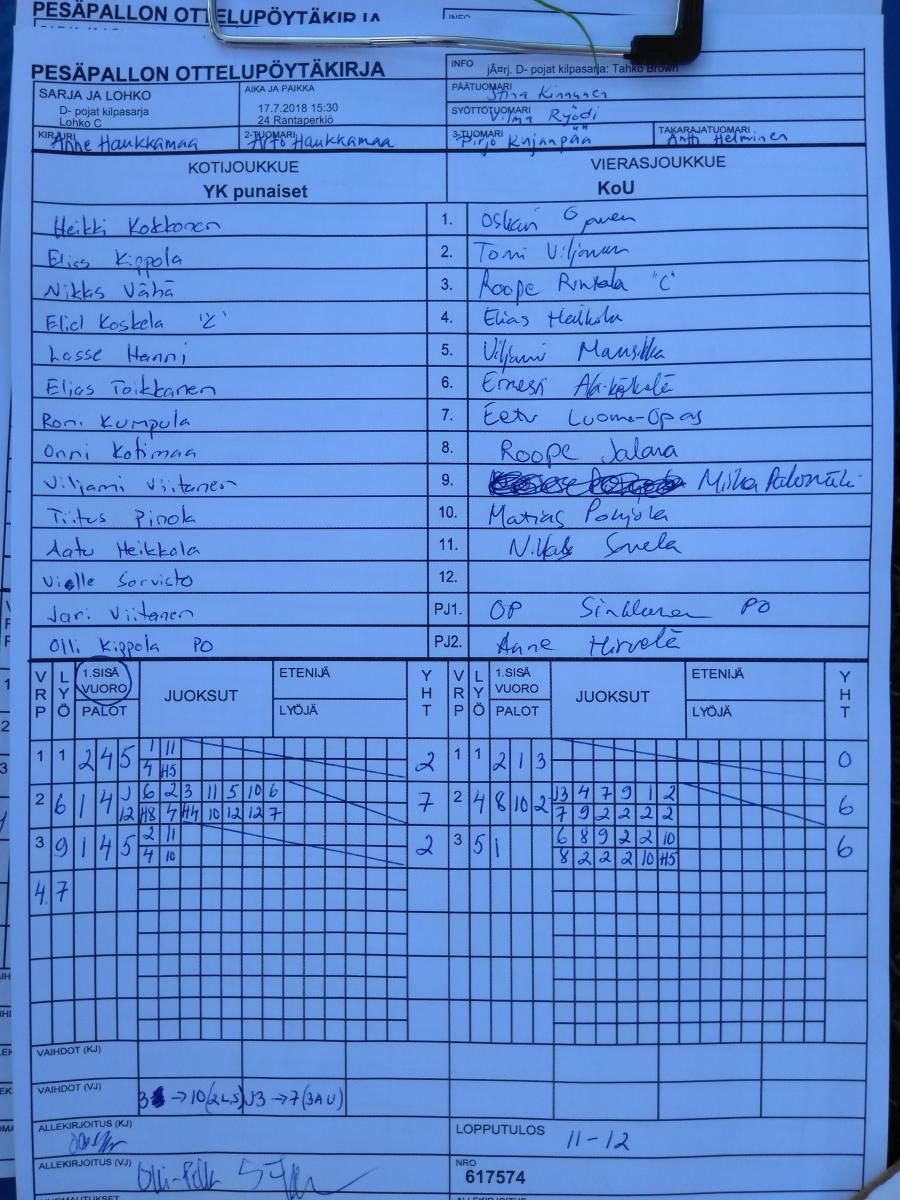 PESÄPALLON OTTELUPÖYTÄKIRJA
INFO
PESÄPALLON OTTELUPÖYTÄKIRJA
INFO jÃ¤rj. D- pojat kilpasarja: Tahko Brown
SARJA JA LOHKO
D- pojat kilpasarja
Lohko C
AIKA JA PAIKKA
17.7.2018 15:30
24 Rantaperkiö
PÄÄTUOMARI Stina Kinnunen
SYÖTTÖTUOMARI Vilma Ryödi
KIRJURI Anne Haukkamaa
2-TUOMARI Arto Haukkamaa
3-TUOMARI Pirjo Kujanpää
TAKARAJATUOMARI Antti Helminen
KOTIJOUKKUE
YK punaiset
VIERASJOUKKUE
KoU
Heikki Kokkonen 1. Oskari
Elias Kippola 2. Tomi Viljanen
Niklas Vähä 3. Roope Rintala "C"
Eliel Koskela 4. Elias Heikola
Lasse Hanni 5. Viljami Mansikka
Elias Toikkanen 6. Ernesti Ala-Kökelä
Roni Kumpula 7. Eetu Luoma-Opas
Onni Kotimaa 8. Roope Jalava
Viljami Viitanen 9. Miika Palomäki
Tiitus Pinola 10. Matias Pohjola
Aatu Heikkola 11. Niklas
Vielle Sorvisto 12.
Jari Viitanen PJ1. OP Sinkkonen PO
Olli Kippola PO PJ2. Anne Hirvelä
VRP LYÖ 1.SISÄ VUORO PALOT JUOKSUT ETENIJÄ LYÖJÄ YHT VRP LYÖ 1.SISÄ VUORO PALOT JUOKSUT ETENIJÄ LYÖJÄ YHT
1 1 2 4 5 1 11 2 1 1 2 1 3 0
4 H5
2 6 1 4 J 6 2 3 11 5 10 6 7 2 4 8 10 2 J3 4 7 9 1 2 6
12 H8 4 H4 10 12 12 7 7 9 2 2 2 2
3 9 1 4 5 2 11 2 3 5 1 6 8 9 2 2 10 6
4 10 8 2 2 2 10 H5
4. 7
VAIHDOT (KJ)
VAIHDOT (VJ) 3 → 10 (2LS) J3 → 7 (3AU)
ALLEKIRJOITUS (KJ)
LOPPUTULOS 11-12
ALLEKIRJOITUS (VJ)
NRO
617574